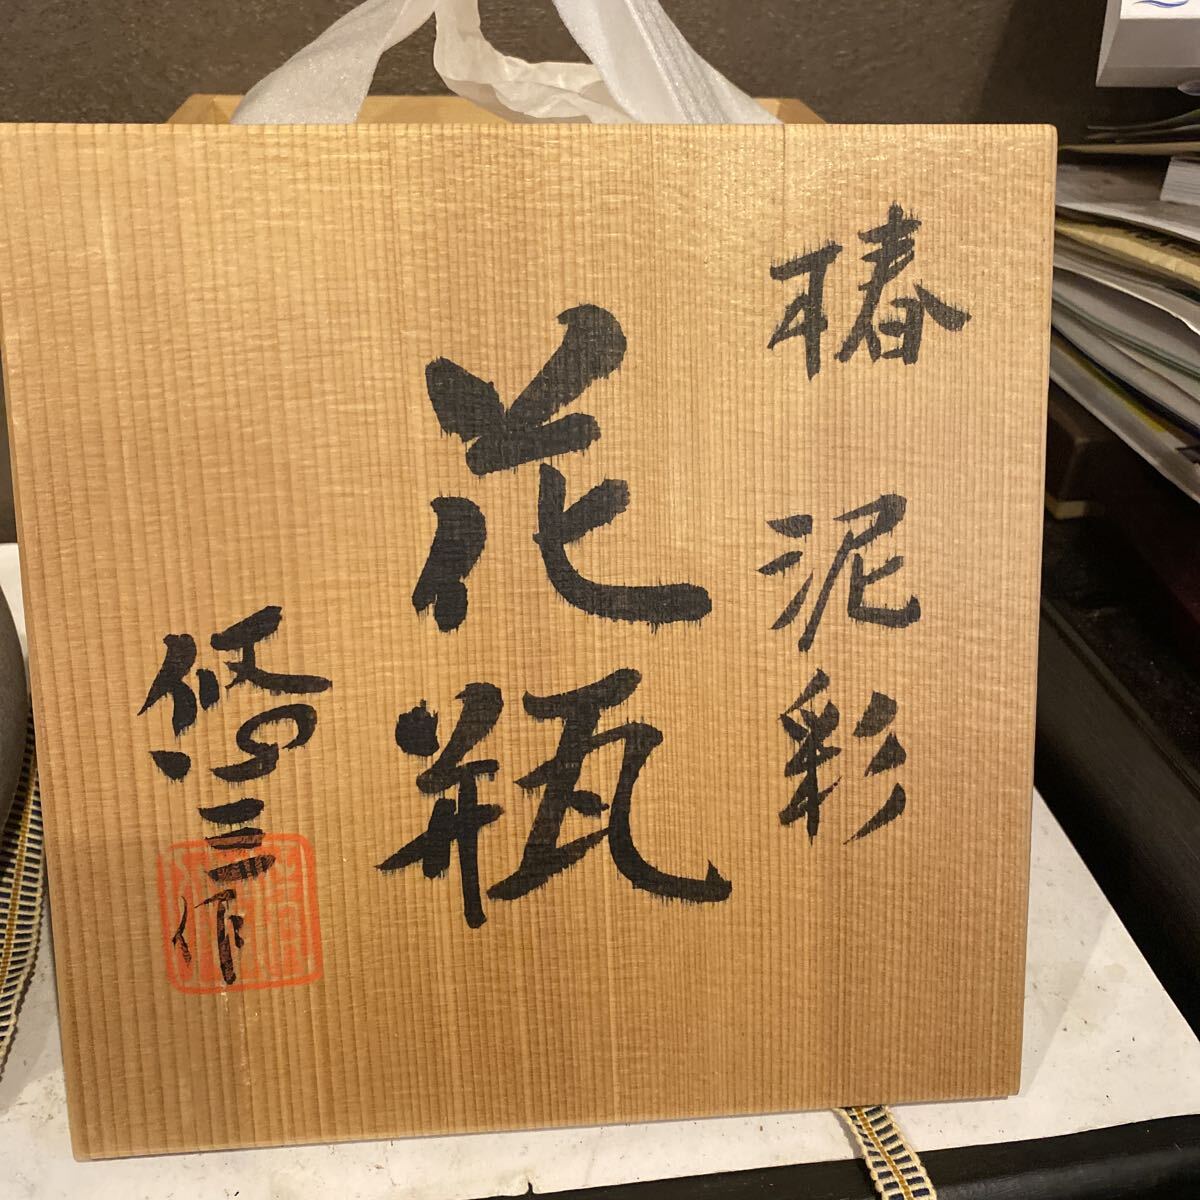 椿泥彩
花瓶
悠三作